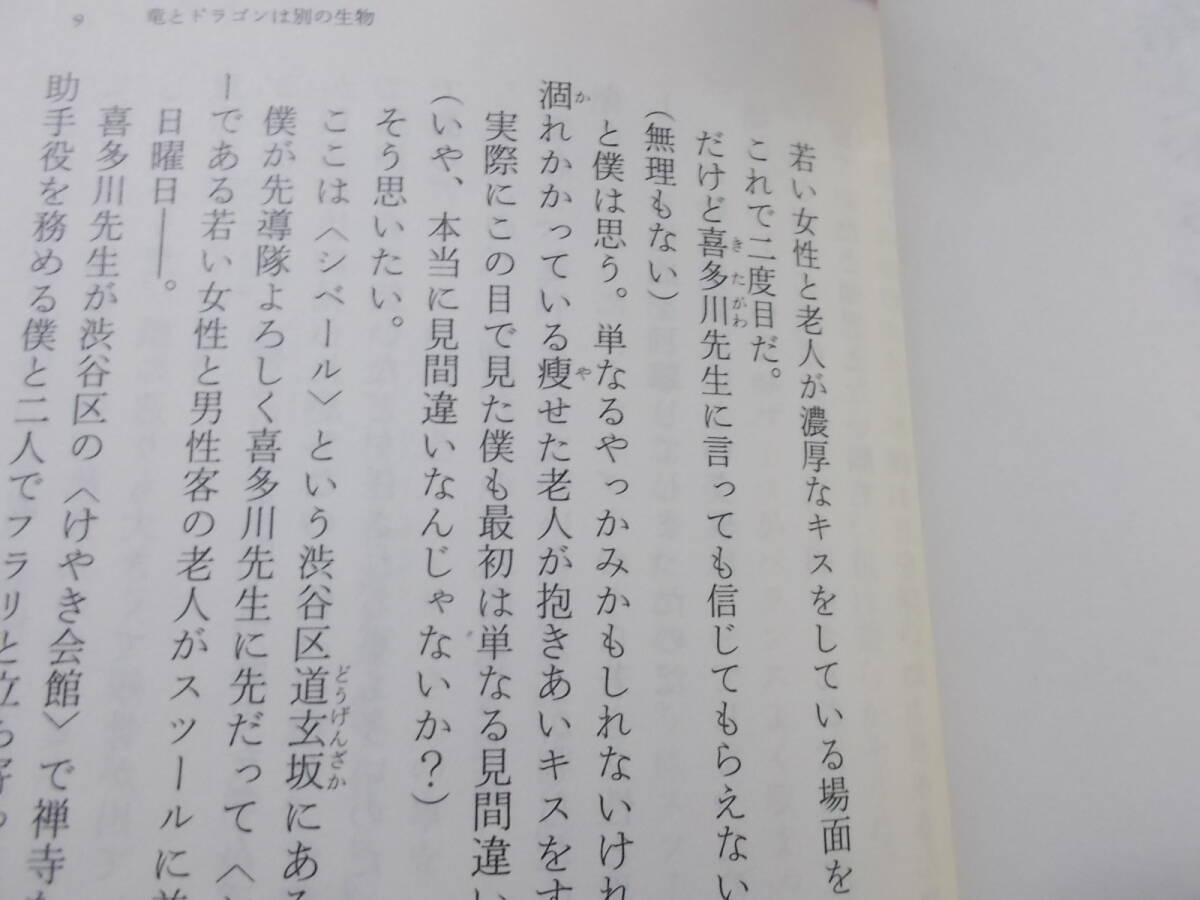 9 竜とドラゴンは別の生物
若い女性と老人が濃厚なキスをしている場面を
これで二度目だ。
だけど喜多川先生に言っても信じてもらえない
きたがわ
(無理もない)
と僕は思う。単なるやっかみかもしれないけれ
涸れかかっている痩せた老人が抱きあいキスをす
か
や
実際にこの目で見た僕も最初は単なる見間違い
(いや、本当に見間違いなんじゃないか?)
そう思いたい。
ここは〈シベール〉という渋谷区道玄坂にある
どうげんざか
僕が先導隊よろしく喜多川先生に先だって〈
ーである若い女性と男性客の老人がスツールに
日曜日――。
喜多川先生が渋谷区の〈けやき会館〉で禅寺
助手役を務める僕と二人でフラリと立ち寄っ